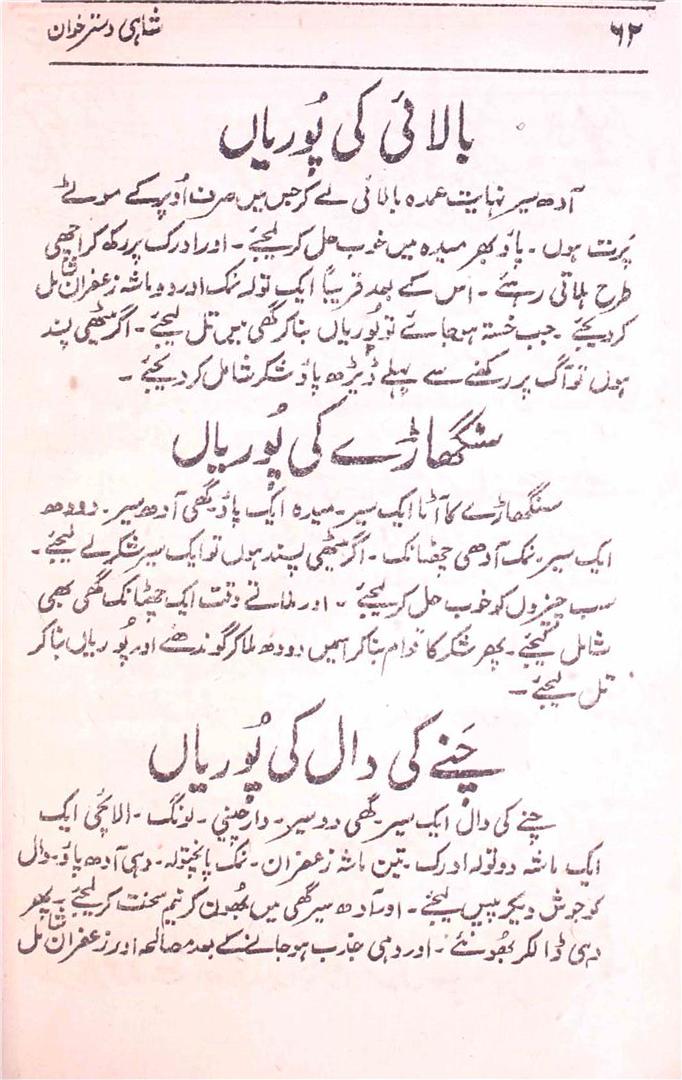 ۶۲
شاہی دسترخوان
بالائی کی پُوریاں
آدھ سیر نہایت عمدہ بالائی لے کر جس میں صرف اُوپر کے موٹے
پرت ہوں۔ پاؤ بھر میدہ میں خوب حل کر لیجئے۔ اور ادرک پر رکھ کر اچھی
طرح ہلاتی رہئے۔ اس کے بعد قریباً ایک تولہ نمک اور دو ماشہ زعفران شامل
کر دیجئے۔ جب خستہ ہو جائے تو پُوریاں بنا کر گھی میں تل لیجئے۔ اگر میٹھی پسند
ہوں تو آگ پر رکھنے سے پہلے ڈیڑھ پاؤ شکر شامل کر دیجئے۔
سنگھاڑے کی پُوریاں
سنگھاڑے کا آٹا ایک سیر۔ میدہ ایک پاؤ۔ گھی آدھ سیر۔ دودھ
ایک سیر۔ نمک آدھی چھٹانک۔ اگر میٹھی پسند ہوں تو ایک سیر شکر لے لیجئے۔
سب چیزوں کو خوب حل کر لیجئے۔ اور ملاتے وقت ایک چھٹانک گھی بھی
شامل کیجئے۔ پھر شکر کا قوام بنا کر اسمیں دودھ ملا کر گوندھے اور پُوریاں بنا کر
تل لیجئے۔
چنے کی دال کی پُوریاں
چنے کی دال ایک سیر۔ گھی دو سیر۔ دارچینی۔ لونگ۔ الائچی ایک
ایک ماشہ دو تولہ ادرک۔ تین ماشہ زعفران۔ نمک پانچتولہ۔ دہی آدھ پاؤ۔ دال
کو جوش دیکر پیس لیجئے۔ اور آدھ سیر گھی میں بھُون کر نیم سخت کر لیجئے۔ پھر
دہی ڈالکر بھُونئے۔ اور دہی جذب ہو جانے کے بعد مصالحہ اور زعفران شامل